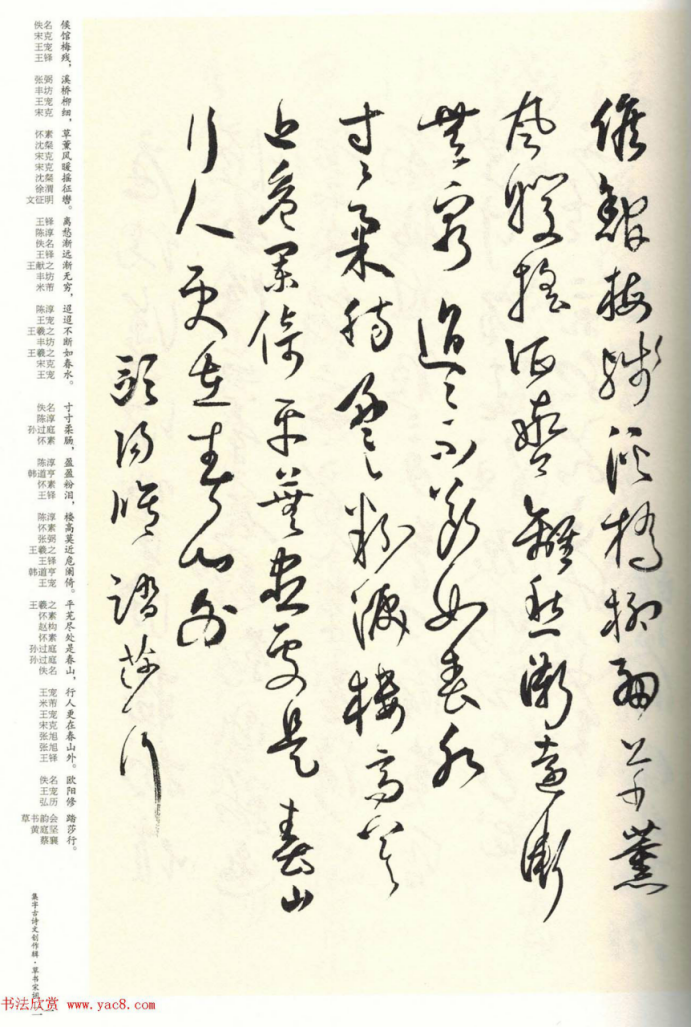 候館梅殘溪橋柳細草薰
風暖搖征轡離愁漸遠漸
無窮迢〻不斷如春水
寸〻柔腸盈〻粉淚樓高莫
近危闌倚平蕪盡處是春山
行人更在春山外
歐陽修踏莎行
候馆梅残，溪桥柳细，草薰风暖摇征辔。离愁渐远渐无穷，迢迢不断如春水。寸寸柔肠，盈盈粉泪，楼高莫近危阑倚。平芜尽处是春山，行人更在春山外。欧阳修 踏莎行。
佚名 宋克 王宠 王铎 张弼 丰坊 王宠 宋克 怀素 沈粲 宋克 宋克 沈粲 徐渭 文征明 王铎 陈淳 佚名 王铎 王献之 丰坊 米芾 陈淳 王宠 王羲之 丰坊 王羲之 宋克 王宠 佚名 陈淳 孙过庭 怀素 陈淳 韩道亨 怀素 王铎 陈淳 怀素 张弼 王羲之 王铎 韩道亨 王宠 王羲之 怀素 赵构 怀素 孙过庭 孙过庭 佚名 王宠 米芾 王宠 宋克 张旭 张旭 王铎 佚名 王宠 弘历 草书韵会 黄庭坚 蔡襄
集字古诗文创作辑·草书宋词
书法欣赏 www.yac8.com